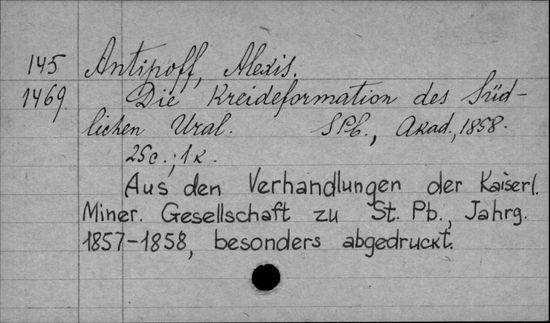 145 Antipoff, Alexis.
1469 Die Kreideformation des Süd-
lichen Ural. SPb., Akad., 1858.
25c.; 1к.
Aus den Verhandlungen der Kaiserl.
Miner. Gesellschaft zu St. Pb., Jahrg.
1857-1858, besonders abgedruckt.